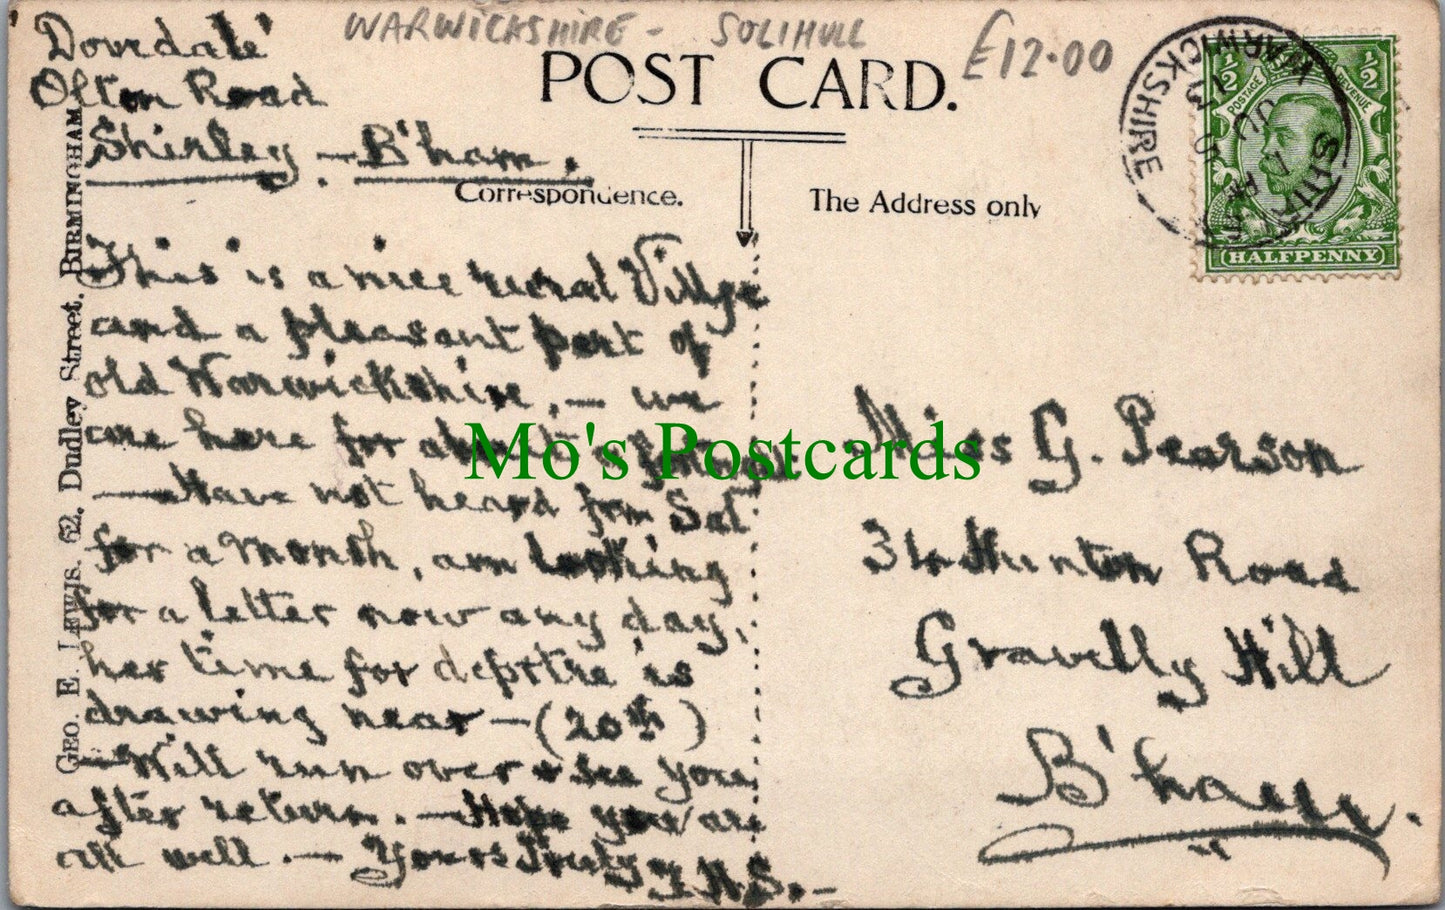 WARWICKSHIRE - SOLIHULL £12.00
Dovedale'
Olton Road
Shirley - B'ham.
POST CARD.
Correspondence.
The Address only
This is a nice rural Village
and a pleasant part of
old Warwickshire, - we
are here for about a
- Have not heard from Sal
for a month, am looking
for a letter now any day,
her time for deprtre is
drawing near - (20th)
- Will run over & see you
after return. - Hope you are
all well. - Yours Truly
Miss G. Pearson
34 Hunton Road
Gravelly Hill
B'ham.
GEO. E. LEWIS. 62, Dudley Street. BIRMINGHAM
SHIRLEY
WARWICKSHIRE
13
POSTAGE
REVENUE
1/2
1/2
HALFPENNY
Mo's Postcards